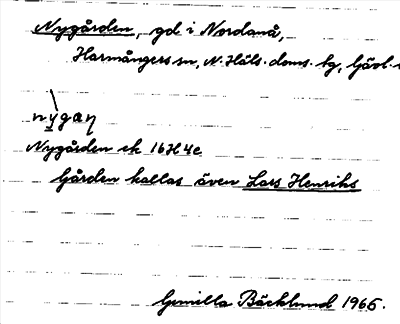 Nygården, gd i Nordanå,
Harmångers sn, N. Häls. doms. fg, Gävl.
nỳgaɳ
Nygården ek 16H4e
Gården kallas även Lars Henriks
Gunilla Bäcklund 1965.